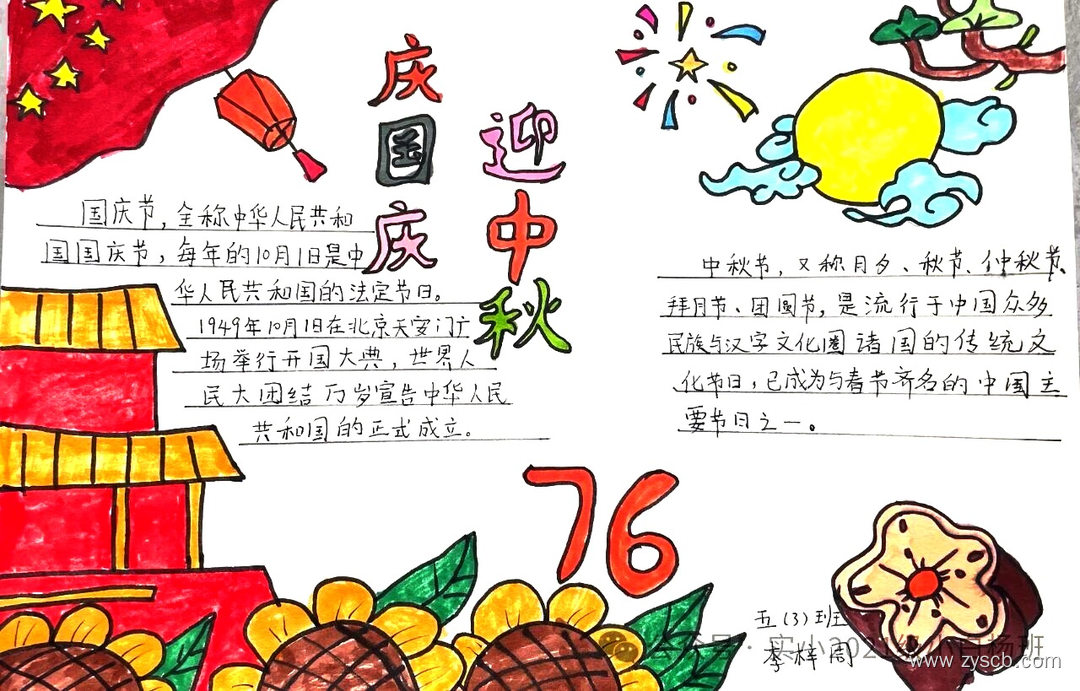 庆国庆
迎中秋
国庆节，全称中华人民共和
国国庆节，每年的10月1日是中
华人民共和国的法定节日。
1949年10月1日在北京天安门广
场举行开国大典，世界人
民大团结万岁宣告中华人民
共和国的正式成立。
中秋节，又称月夕、秋节、仲秋节、
拜月节、团圆节，是流行于中国众多
民族与汉字文化圈诸国的传统文
化节日，已成为与春节齐名的中国主
要节日之一。
76
五(3)班
李梓周
公众号·实小2021级小白杨班
www.zyscb.com